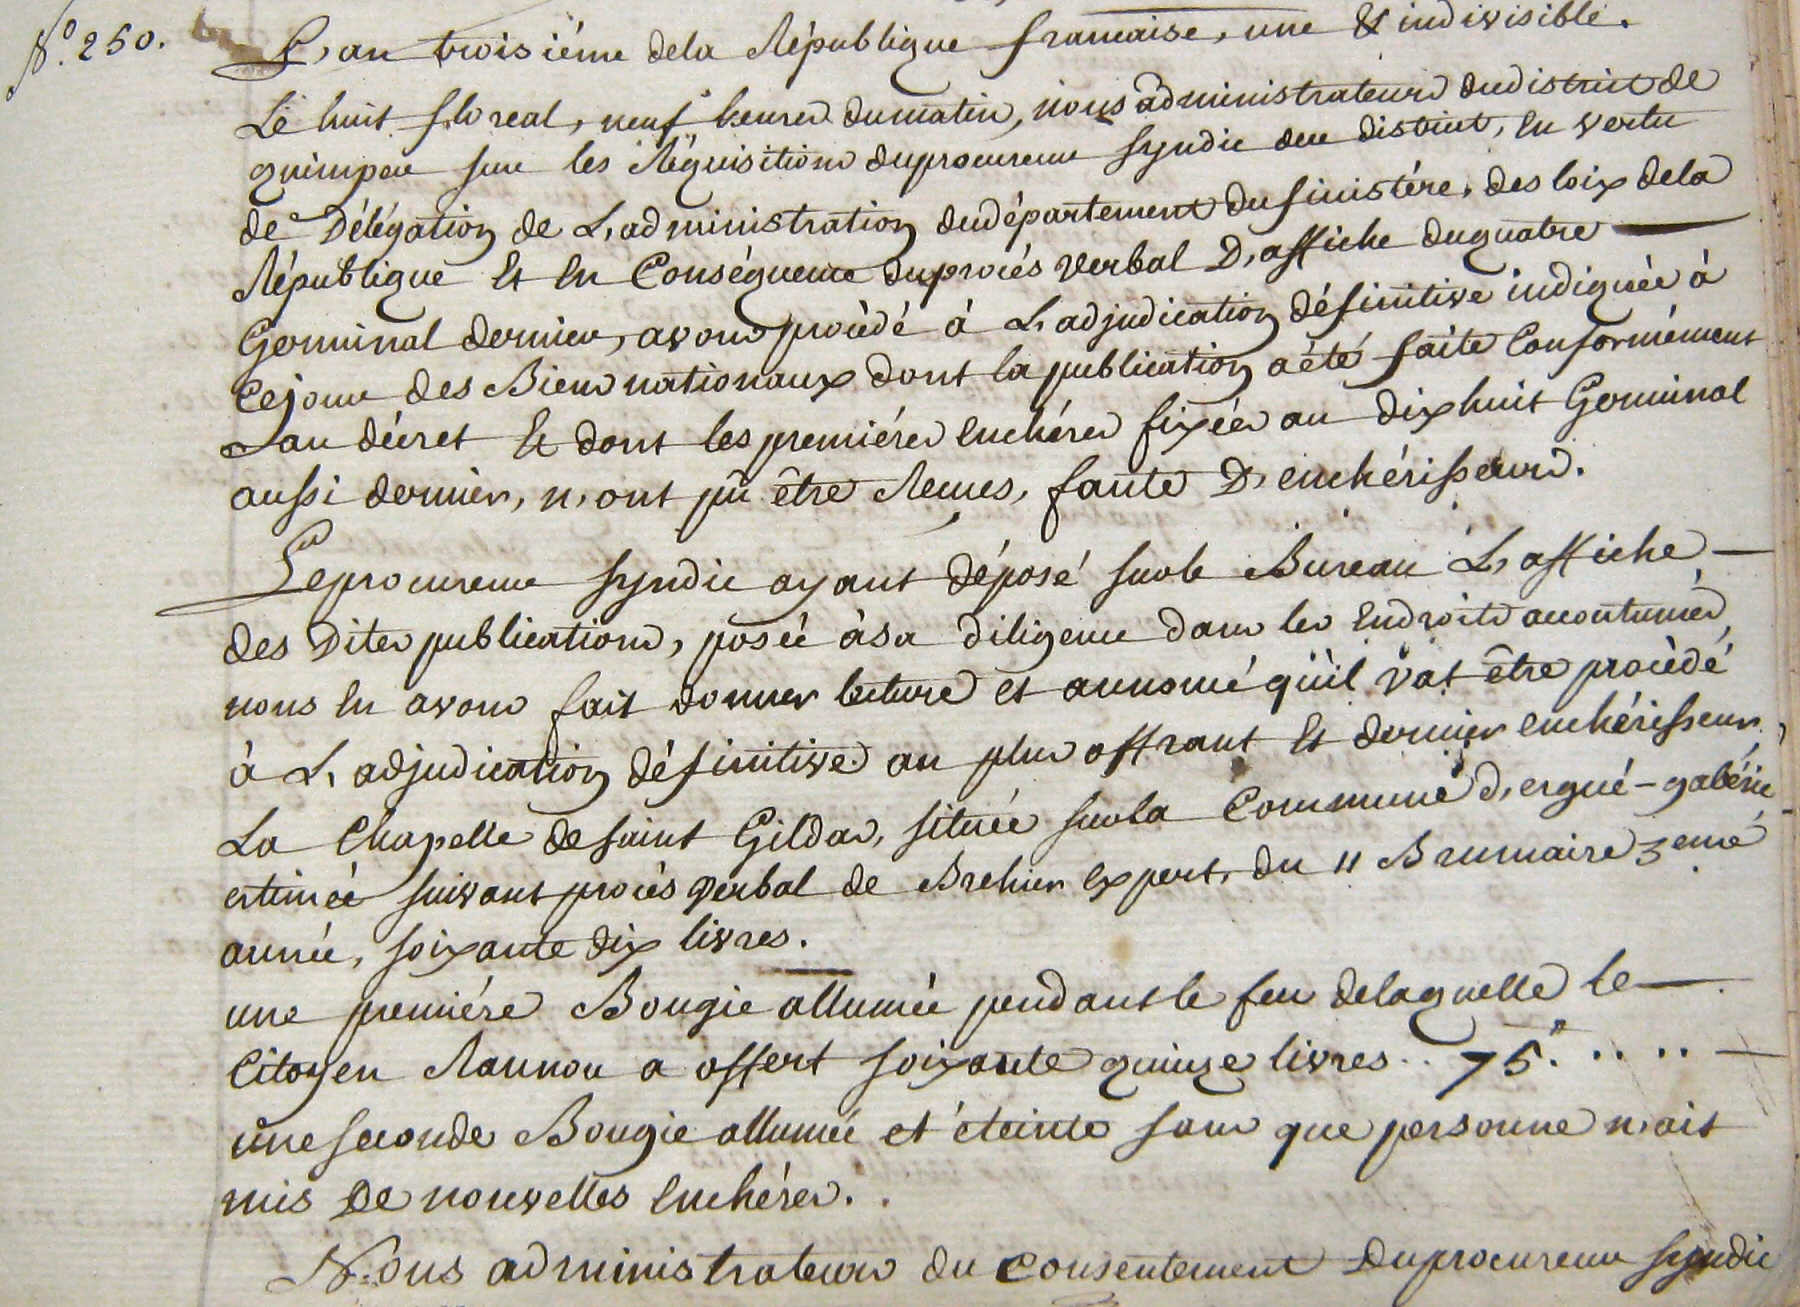 N.° 250.
L'an troisiéme dela République francaise, une & indivisible.
Le huit floreal, neuf heures dumatin, nous administrateurs dudistrict de
quimper sur les Réquisitions duprocureur syndic dece district, En vertu
de Délégation de L'administration dudépartement dufinistére, des loix dela
République Et En Conséquence duprocés verbal D'affiche duquatre
Germinal dernier, avons procédé à L'adjudication définitive indiquée à
cejour des Biens nationaux dont la publication aété faite Conformément
au décret Et dont les premiéres Enchéres fixées au dixhuit Germinal
aussi dernier, n'ont pû être Recues, faute D'enchérisseurs.
Leprocureur syndic ayant déposé surle Bureau L'affiche
des Dites publications, posée àsa diligence dans les Endroits accoutumés,
nous En avons fait donner lecture et annoncé qu'il vat être procédé
à L'adjudication définitive au plus offrant Et dernier enchérisseur,
La Chapelle desaint Gildas, située surla Commune d'ergué-gabéric
estimée suivant procés verbal de Brehier Expert, du 11 Brumaire 3eme
année, soixante dix livres.
une premiére Bougie allumée pendant le feu delaquelle le
Citoyen Rannou a offert soixante quinze livres .. 75.# ....
une seconde Bougie allumée et éteinte sans que personne n'ait
mis De nouvelles Enchéres.
Nous administrateurs du consentement Duprocureur syndic